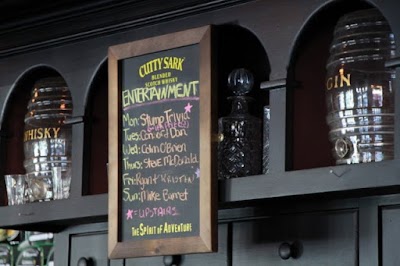 CUTTY SARK
BLENDED
SCOTCH WHISKY
ENTERTAINMENT
Mon: Stump Trivia
Tues: Conor & Dan
Wed: Colm O'Brien
Thurs: Steve McDonald
Fri: Ryan & Kristen
Sun: Mike Barret
*UPSTAIRS
THE SPIRIT OF ADVENTURE
WHISKY
GIN